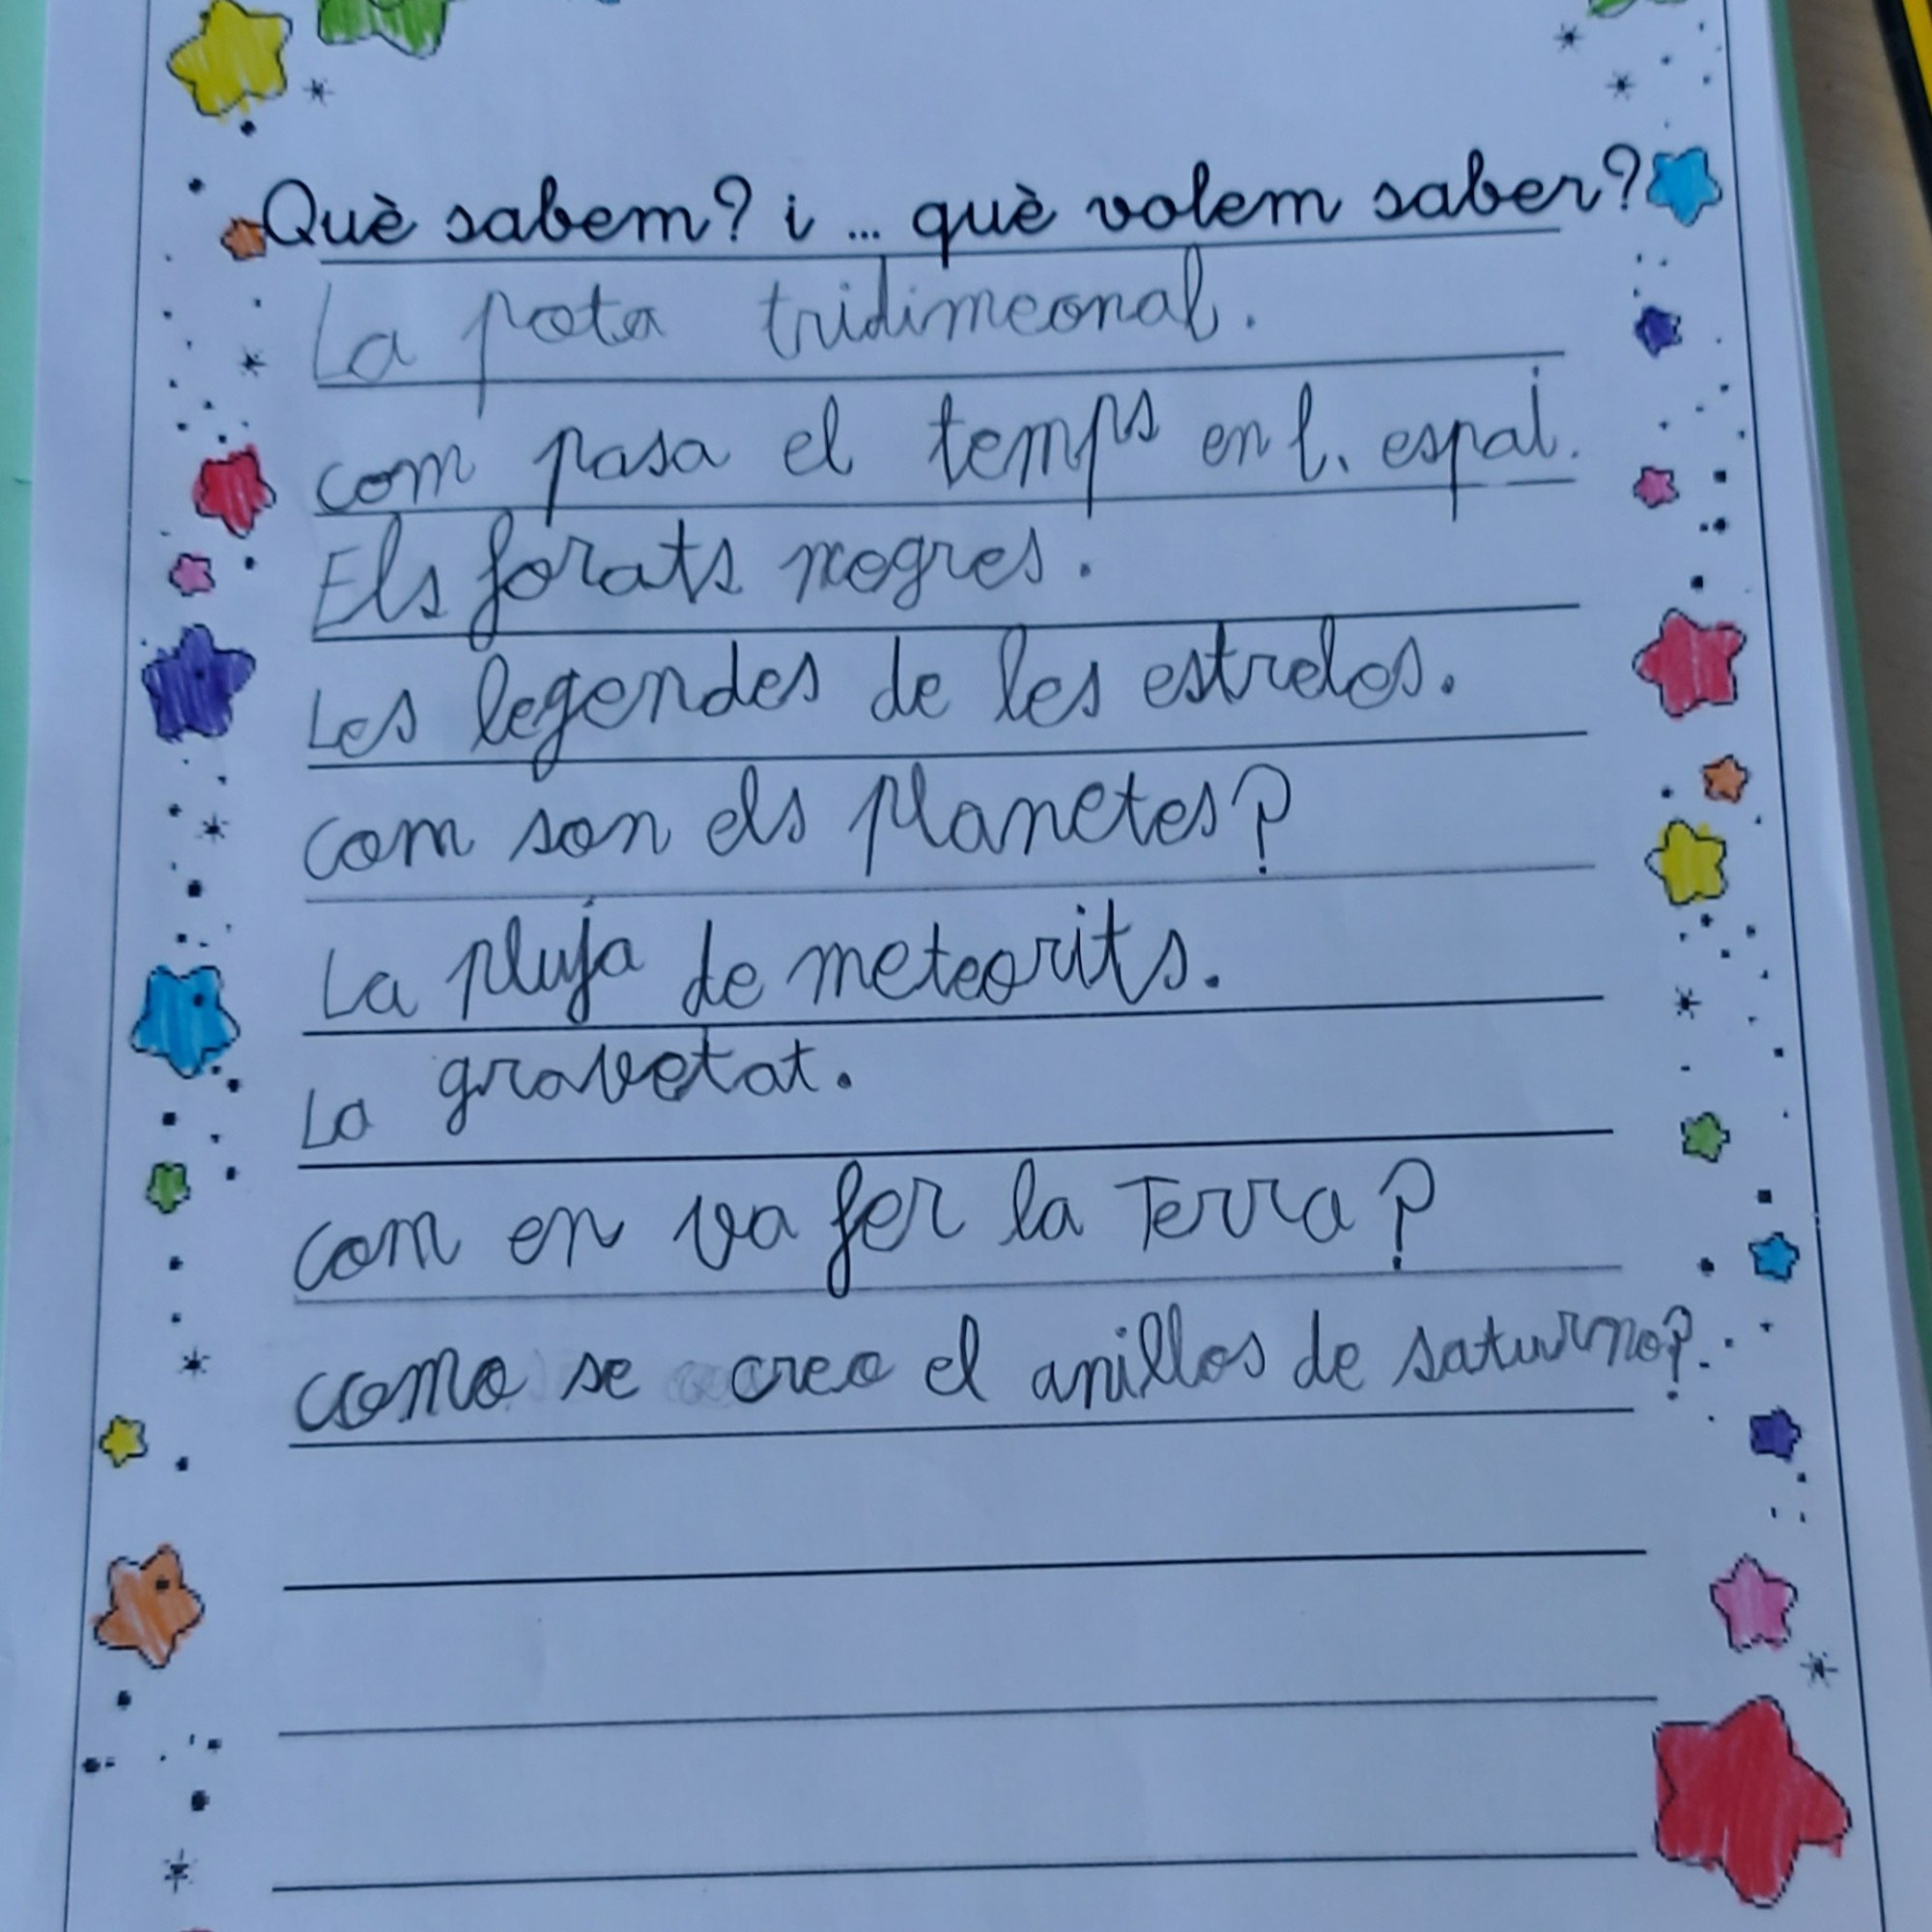 Què sabem? i ... què volem saber?
La pota tridimeonal.
com pasa el temps en l, espai.
Els forats nogres.
Les legendes de les estreles.
com son els planetes?
La pluja de meteorits.
La gravetat.
com en va fer la Terra?
como se creo el anillos de saturno?